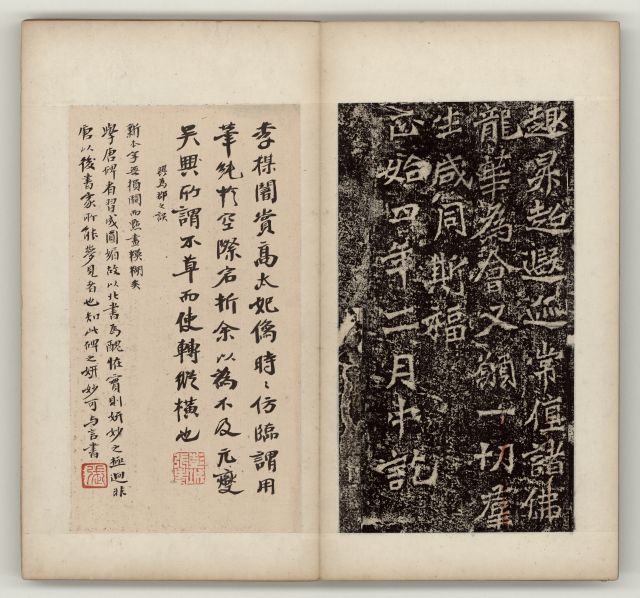 趣昇超遐迩常值諸佛
龍華為會又願一切羣
生咸同斯福
正始四年二月中訖
李楳闇賞高太妃僞時〻仿臨謂用
筆純於空際宕折余以為不及元燮
吳興所謂不草而使轉縱橫也
興為郡之誤
新本字多損闕而點畫模糊矣
學唐碑者習成圓媚故以北書為醜怪實則妍妙之極迥非
唐以後書家所能夢見者也知此碑之妍妙可与言書